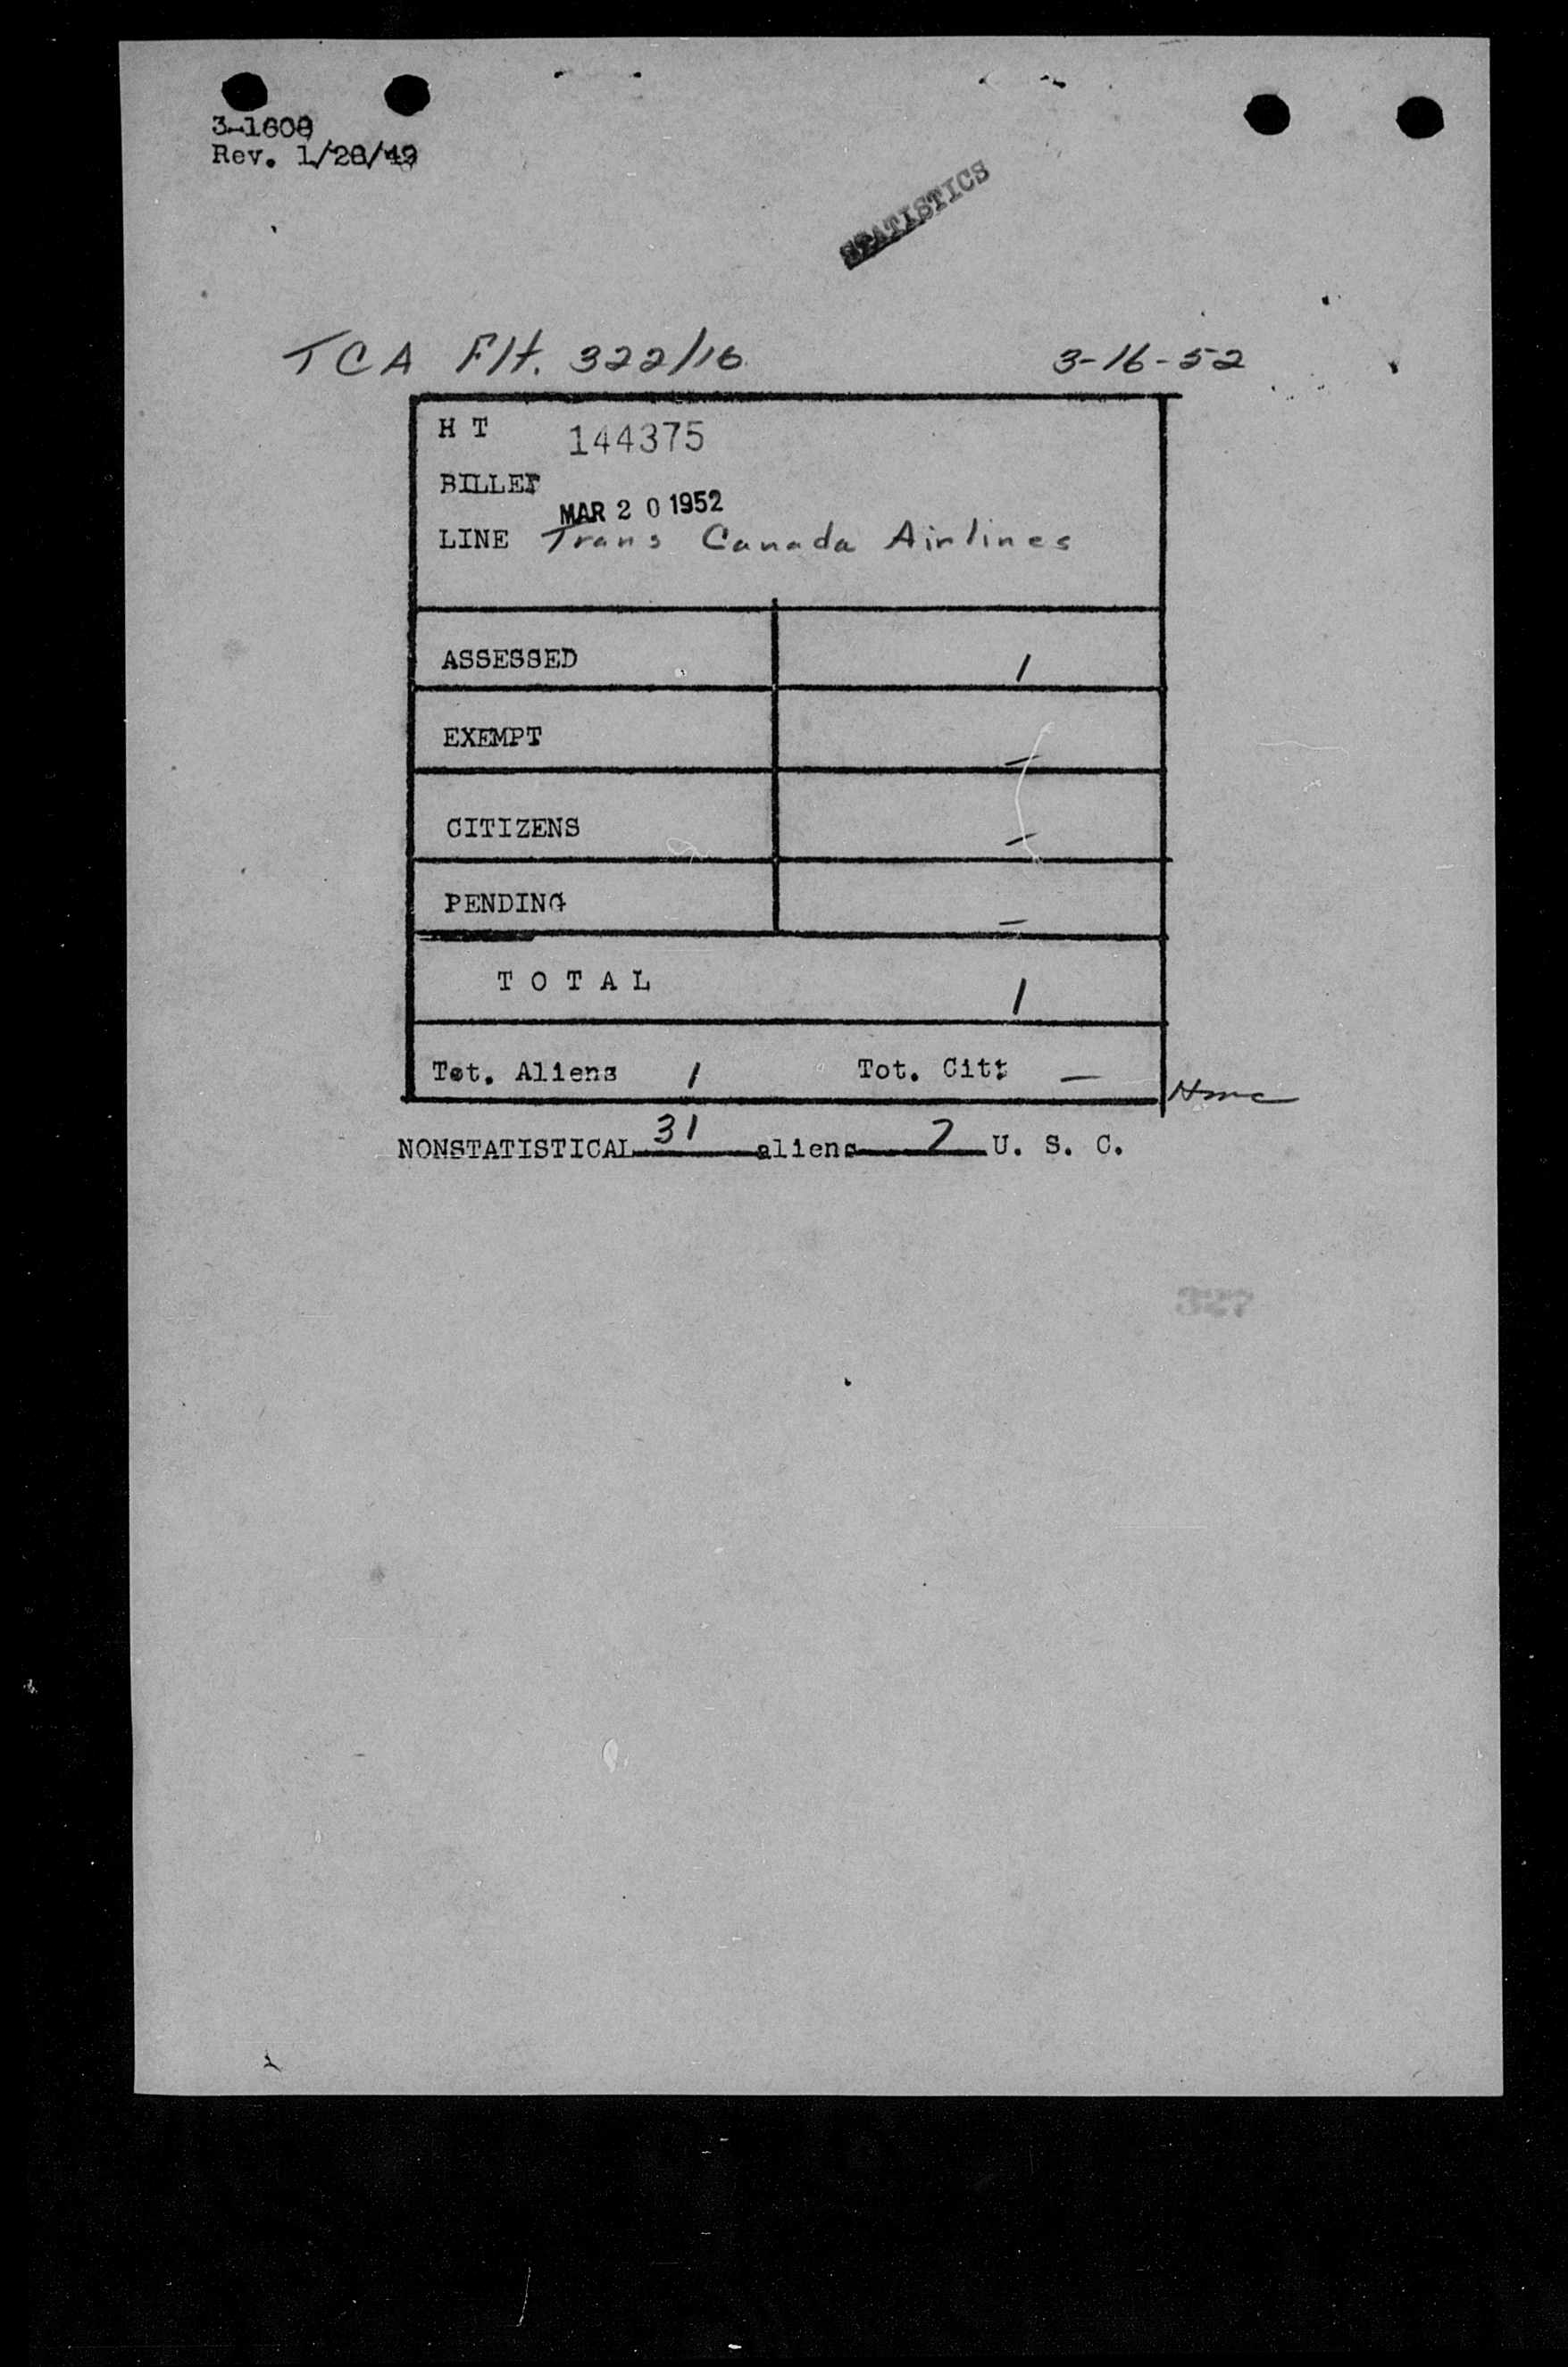 3-1609
Rev. 1/28/49
STATISTICS
TCA Flt. 322/16 3-16-52
H T 144375
BILLET
MAR 20 1952
LINE Trans Canada Airlines
ASSESSED 1
EXEMPT –
CITIZENS –
PENDING –
T O T A L 1
Tot. Aliens 1 Tot. Cit: –
NONSTATISTICAL 31 aliens 7 U. S. C.
327